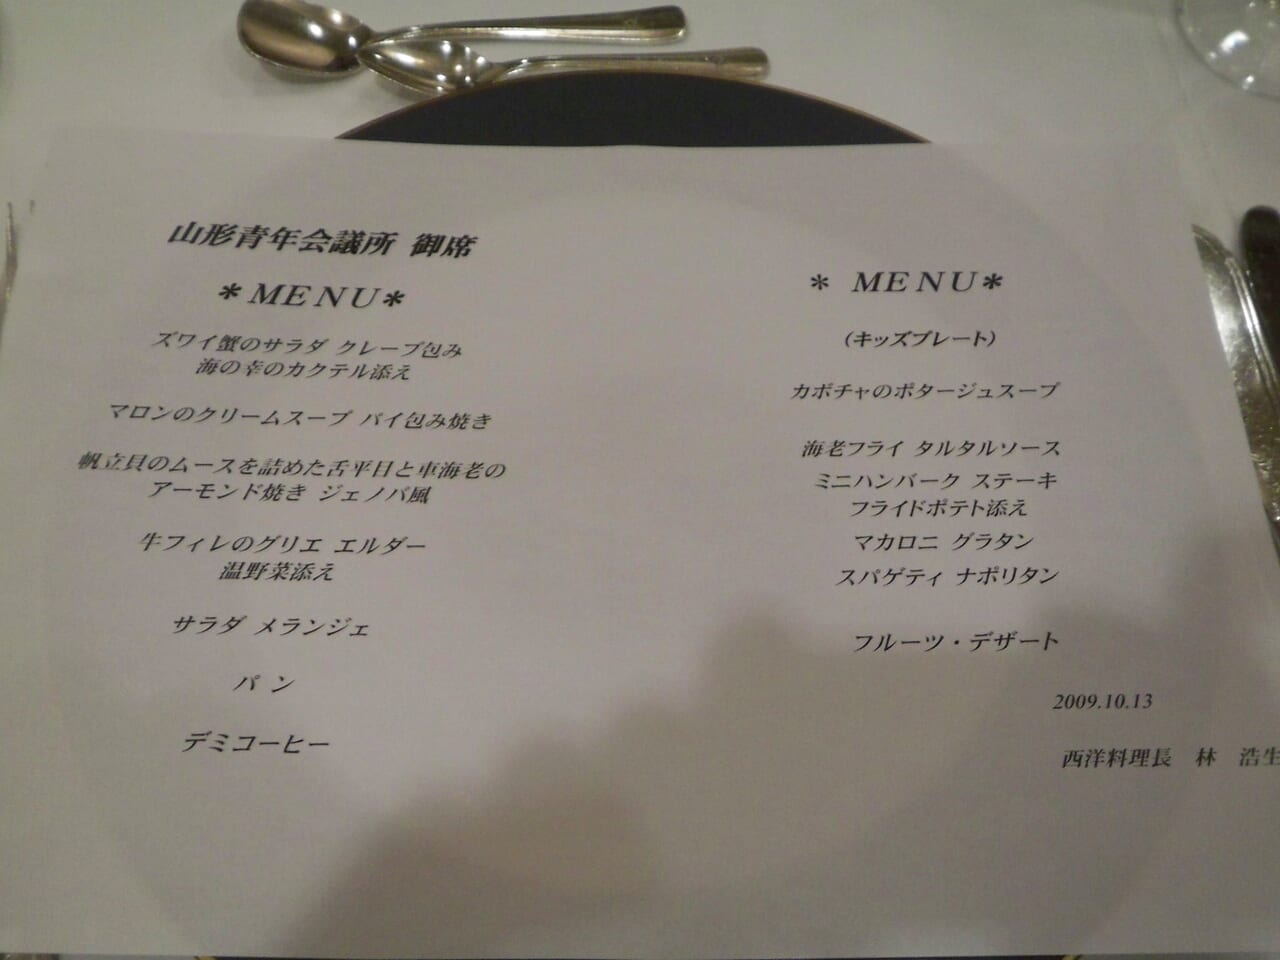 山形青年会議所 御席
＊MENU＊
ズワイ蟹のサラダ クレープ包み
海の幸のカクテル添え
マロンのクリームスープ パイ包み焼き
帆立貝のムースを詰めた舌平目と車海老の
アーモンド焼き ジェノバ風
牛フィレのグリエ エルダー
温野菜添え
サラダ メランジェ
パン
デミコーヒー
＊ MENU＊
（キッズプレート）
カボチャのポタージュスープ
海老フライ タルタルソース
ミニハンバーク ステーキ
フライドポテト添え
マカロニ グラタン
スパゲティ ナポリタン
フルーツ・デザート
2009.10.13
西洋料理長 林 浩生